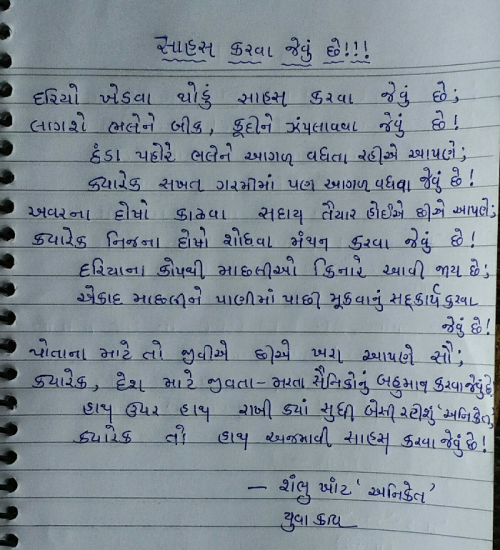 સાહસ કરવા જેવું છે!!!
દરિયો ખેડવા થોડું સાહસ કરવા જેવું છે;
લાગશે ભલેને બીક, કૂદીને ઝંપલાવવા જેવું છે!
ઠંડા પહોરે ભલેને આગળ વધતા રહીએ આપણે;
ક્યારેક સખત ગરમીમાં પણ આગળ વધવા જેવું છે!
અવરના દોષો કાઢવા સદાય તૈયાર હોઈએ છીએ આપણે;
ક્યારેક નિજના દોષો શોધવા મંથન કરવા જેવું છે!
દરિયાના કોપથી માછલીઓ કિનારે આવી જાય છે;
એકાદ માછલીને પાણીમાં પાછી મૂકવાનું સદ્કાર્ય કરવા
જેવું છે!
પોતાના માટે તો જીવીએ છીએ ખરા આપણે સૌ;
ક્યારેક, દેશ માટે જીવતા-મરતા સૈનિકોનું બહુમાન કરવા જેવું છે
હાથ ઉપર હાથ રાખી ક્યાં સુધી બેસી રહીશું 'અનિકેત';
ક્યારેક તો હાથ અજમાવી સાહસ કરવા જેવું છે!
- શંભુ ખાંટ 'અનિકેત'
યુવા કવિ